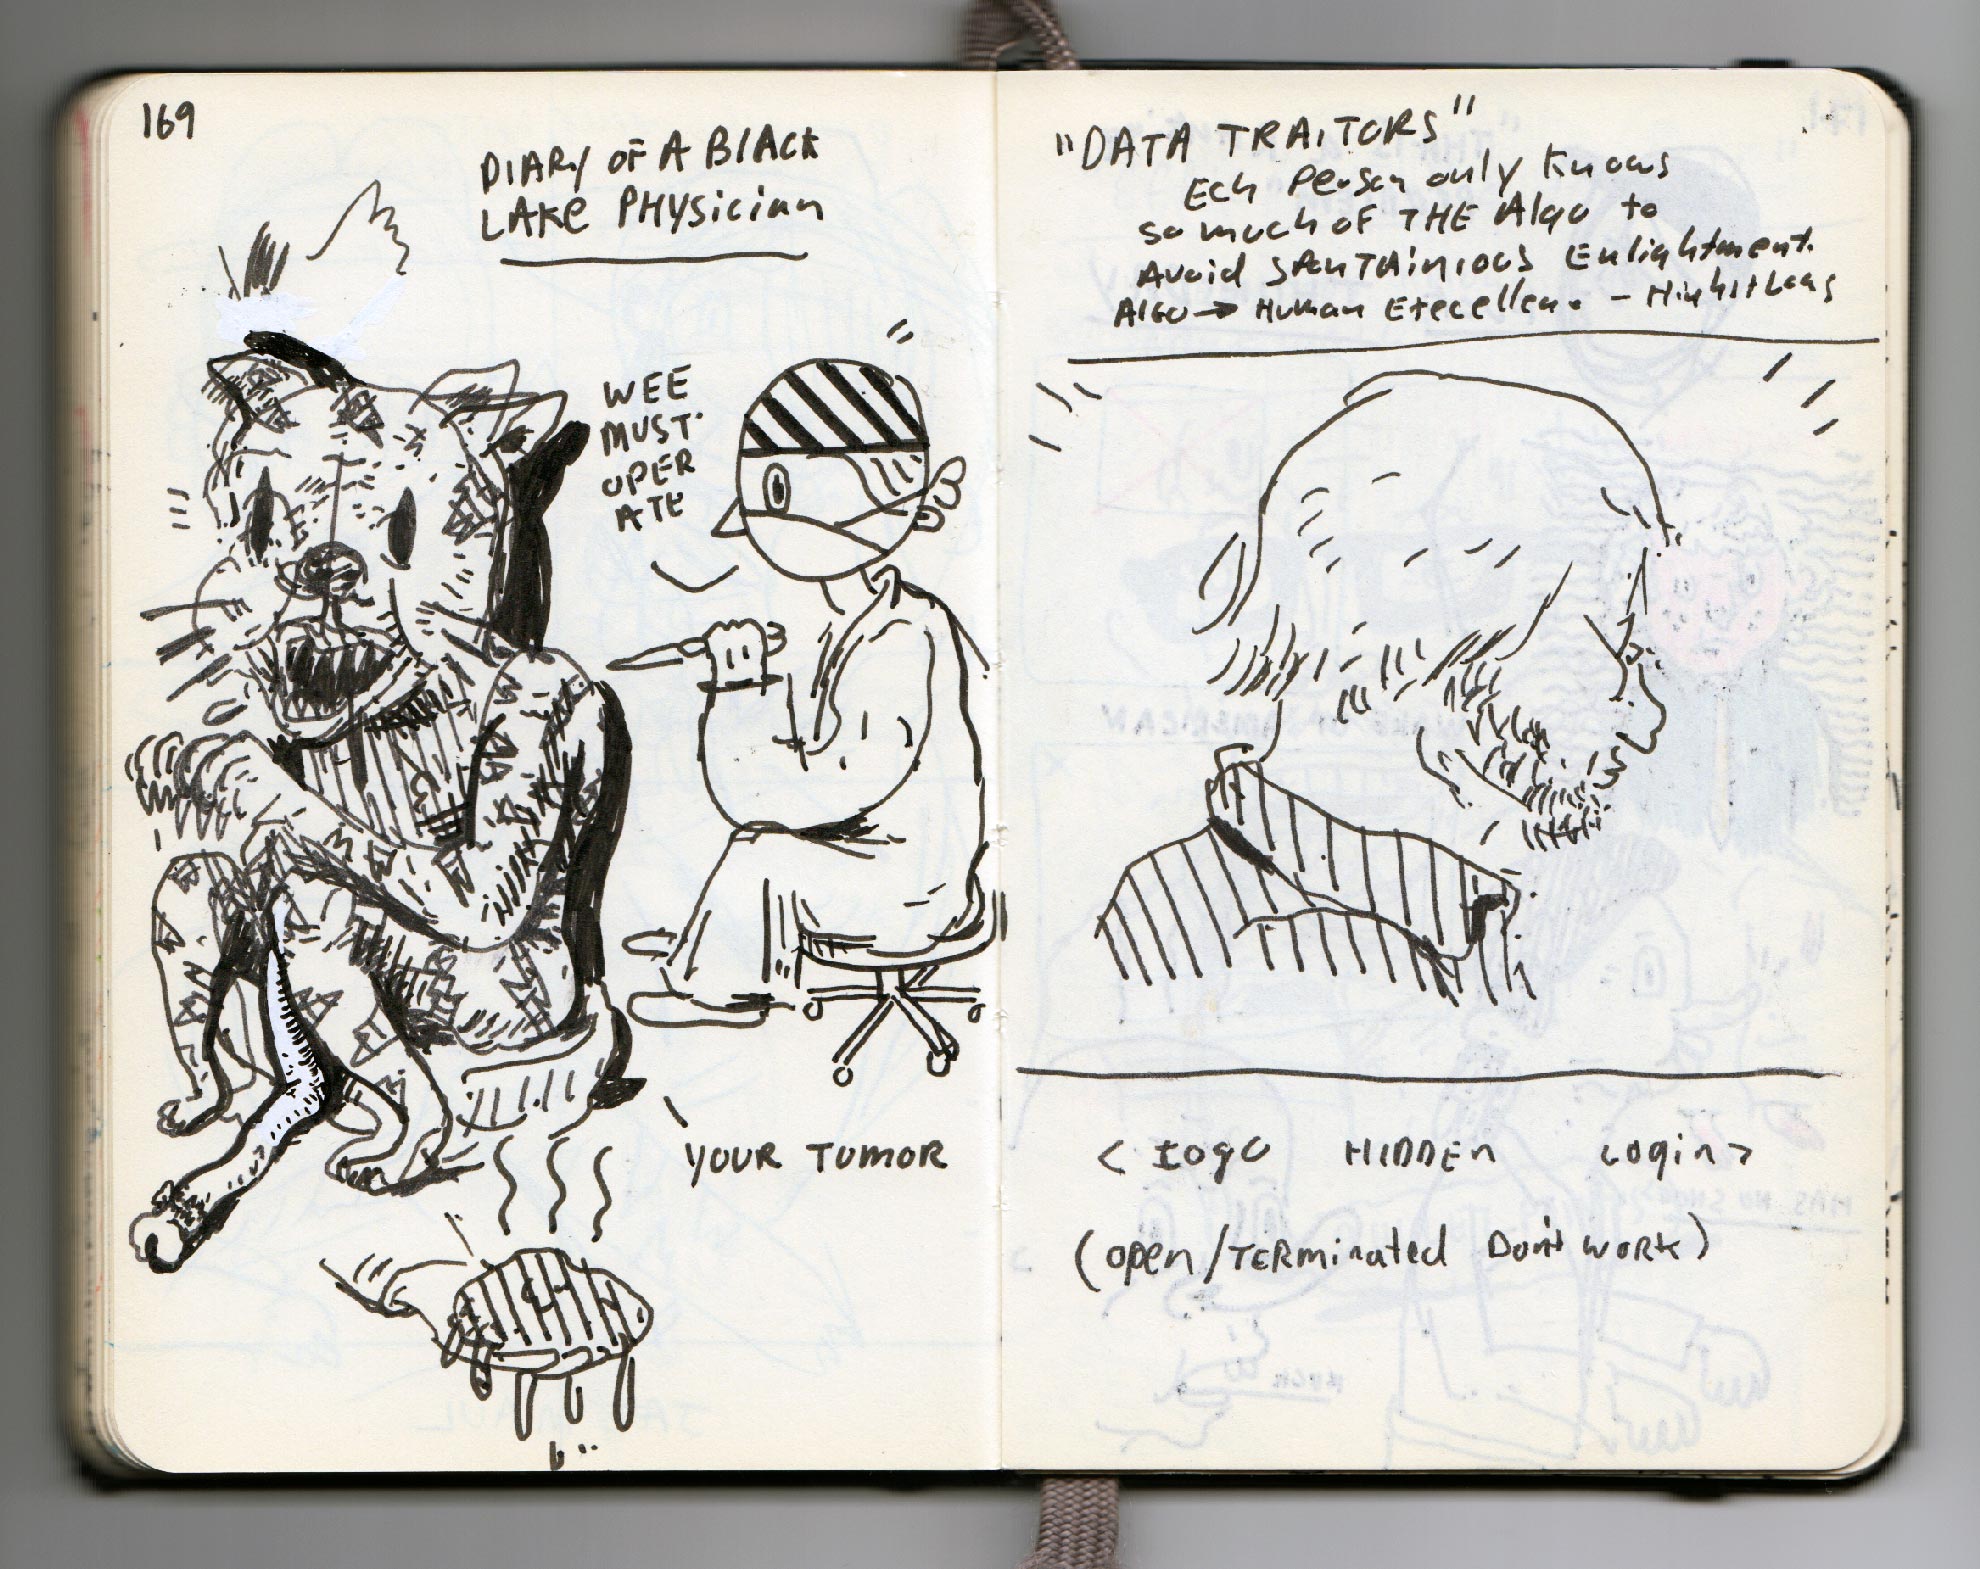 169
DIARY OF A BLACK
LAKE PHYSICIAN
WEE
MUST
OPER
ATE
YOUR TUMOR
"DATA TRAITORS"
Ech Person only Knows
so much of THE Algo to
Avoid SPONTAINIOUS Enlightment.
Algo → Human
< Logo HIDDEN Login >
(open/TERMinated Don't work)